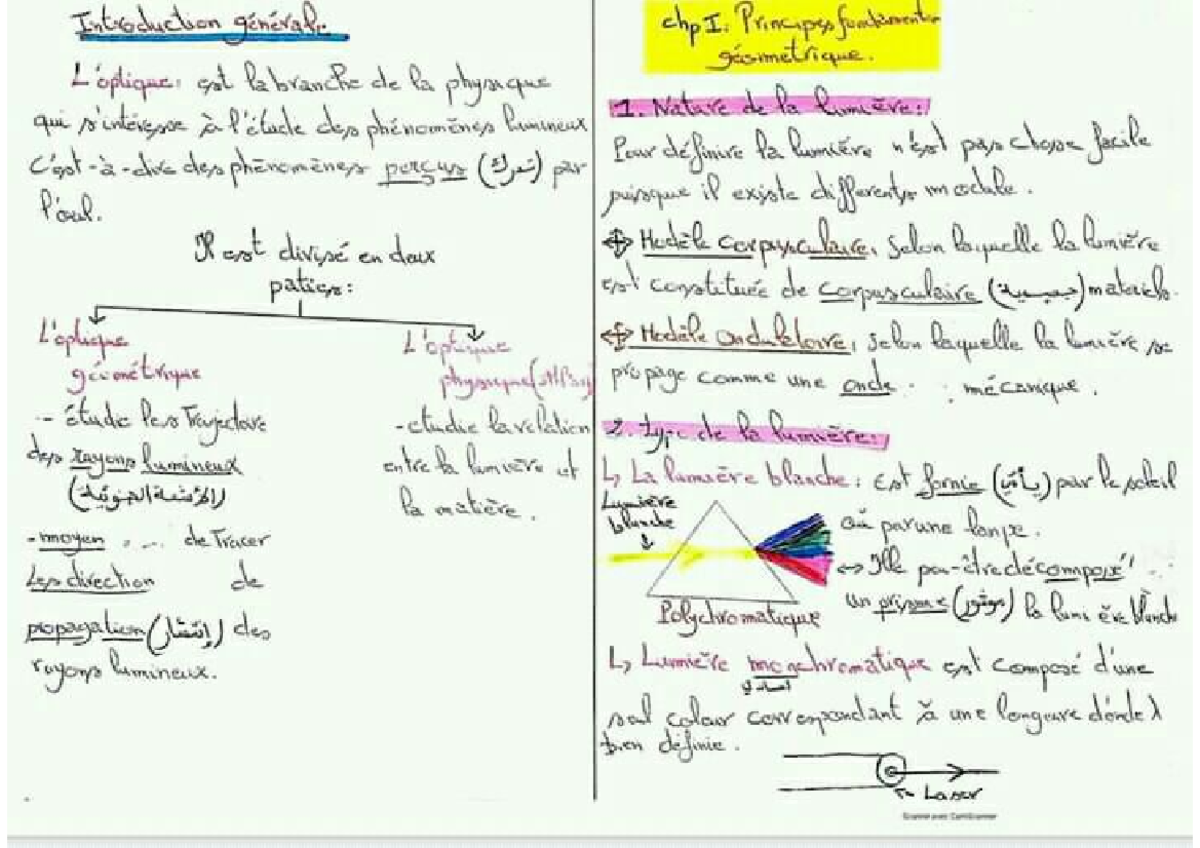 Introduction générale
L'optique: est la branche de la physique
qui s'intéresse à l'étude des phénomènes lumineux
C'est-à-dire des phénomènes perçus par
l'œul.
Il est divisé en deux
paties:
L'optique
géométrique
- étude les Trajectoire
des rayons lumineux
(الأشعة الضوئية)
- moyen de Tracer
Les direction de
propagation (إنتشار) des
rayons lumineux.
L'optique
physique
- etudie la relation
entre la lumière et
la matière.
chp I: Principes fondamenta
géométrique.
1. Nature de la lumière:
Pour définire la lumière n'est pas chose facile
puisque il existe differents modèle.
Modèle corpusculaire, Selon laquelle la lumière
est constituée de corpusculaire materiels.
Modèle ondulatoire, Selon laquelle la lumière se
propage comme une onde mécanique.
2. type de la lumière:
La lumière blanche: est fornie par le soleil
où par une lampe.
Lumière
blanche
Polychromatique
Ille peu-être décomposé
un prisme (موثور) la lumière blanche
Lumière monochromatique est composé d'une
seul colour correspondant à une longeure d'onde λ
bien définie.
Laser
Scanné avec CamScanner